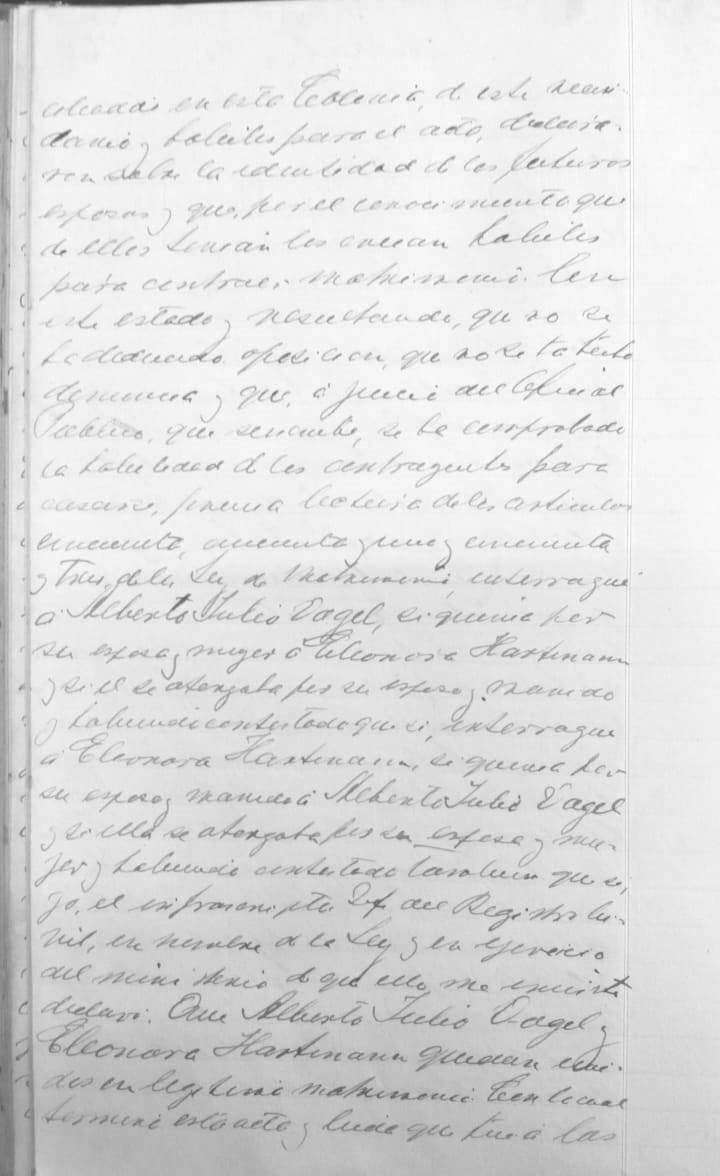 ciliados en esta Colonia, de este vecin-
dario y habiles para el acto, declara-
ron sobre la identidad de los futuros
esposos y que, por el conocimiento que
de ellos tenian los creian habiles
para contraer matrimonio. En
este estado y resultando, que no se
ha deducido oposicion, que no se ha hecho
denuncia y que, á juicio del Oficial
Publico, que suscribe, se ha comprobado
la habilidad de los contrayentes para
casarse, previa lectura de los articulos
cincuenta, cincuenta y uno y cincuenta
y tres, de la Ley de Matrimonio, interrogué
á Alberto Julio Vagel, si queria por
su esposa y muger á Eleonora Hartmann
y si el se otorgaba por su esposo y marido
y habiendo contestado que si, interrogue
á Eleonora Hartmann, si queria por
su esposo y marido á Alberto Julio Vagel
y si ella se otorgaba por su esposa y mu-
jer y habiendo contestado tambien que si,
yo, el infrascripto Gefe del Registro Ci-
vil, en nombre de la Ley y en ejercicio
del ministerio de que ella me inviste
declaro: Que Alberto Julio Vagel y
Eleonora Hartmann quedan uni-
dos en legitimo matrimonio. Con lo cual
terminó este acto y leida que fue á las